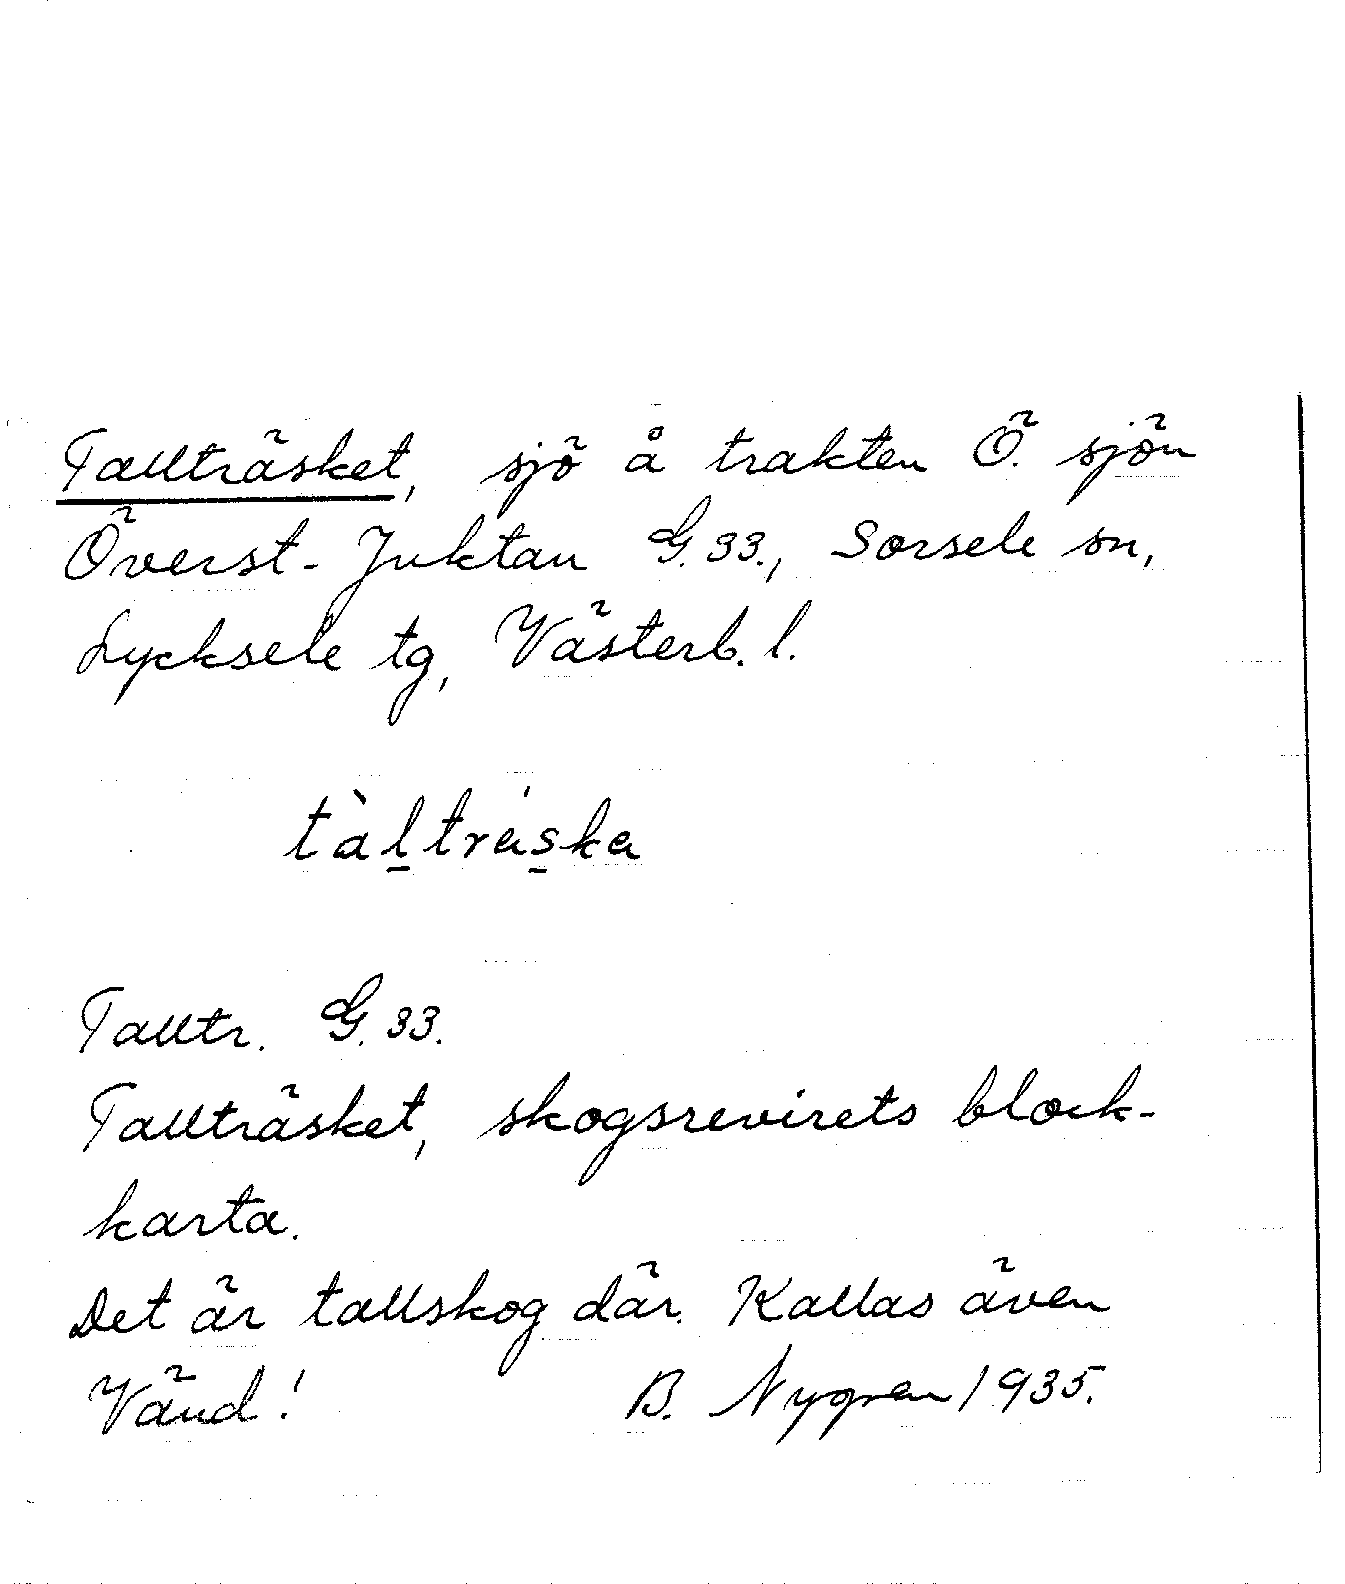 Tallträsket, sjö å trakten Ö. sjön
Överst-Juktan G. 33., Sorsele sn,
Lycksele tg, Västerb. l.
tàltráska
Talltr. G. 33.
Tallträsket, skogsrevirets block-
karta.
Det är tallskog där. Kallas även
Vänd! B. Nygren 1935.